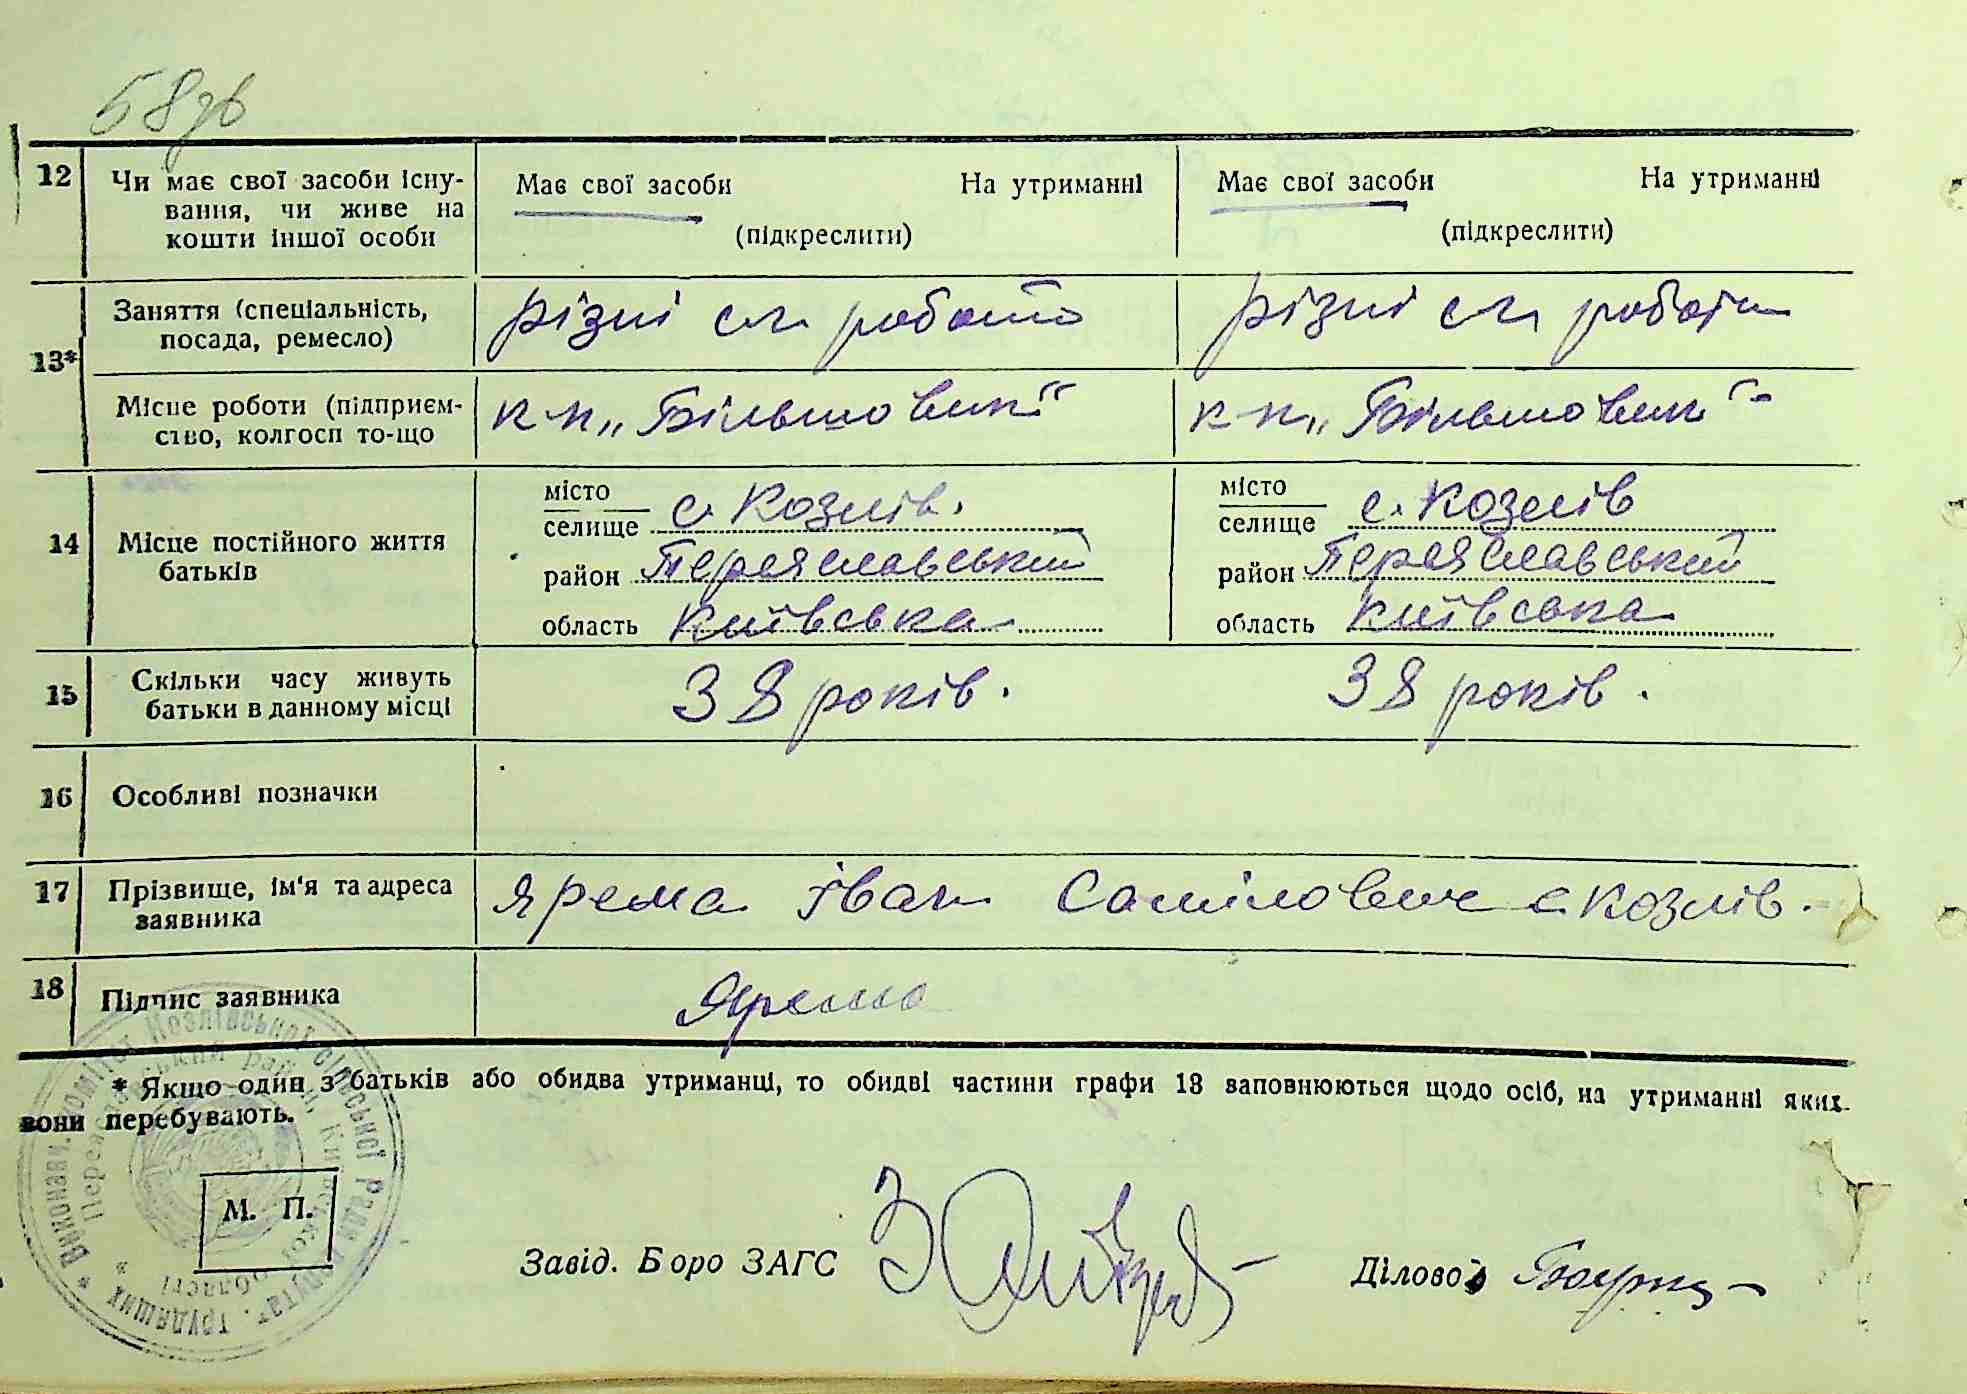 58зв
12 Чи має свої засоби існу-
вання, чи живе на
кошти іншої особи
Має свої засоби На утриманні
(підкреслити)
Має свої засоби На утриманні
(підкреслити)
13*
Заняття (спеціальність,
посада, ремесло)
різні с.г. роботи
різні с.г. роботи
Місце роботи (підприєм-
ство, колгосп то-що
к-п „Більшовик"
к-п „Більшовик"
14 Місце постійного життя
батьків
місто
селище с. Козлів.
район Переяславський
область Київська
місто
селище с. Козлів
район Переяславський
область Київська
15 Скільки часу живуть
батьки в данному місці
38 років.
38 років.
16 Особливі позначки
17 Прізвище, ім'я та адреса
заявника
Ярема Іван Самілович с Козлів.
18 Підпис заявника
Ярема
* Якщо один з батьків або обидва утриманці, то обидві частини графи 13 заповнюються щодо осіб, на утриманні яких
вони перебувають.
* Виконавч. комітет Козлівської сільської Ради депутат. трудящих *
Переяславський район, Київської області *
М. П.
Завід. Боро ЗАГС
Діловод